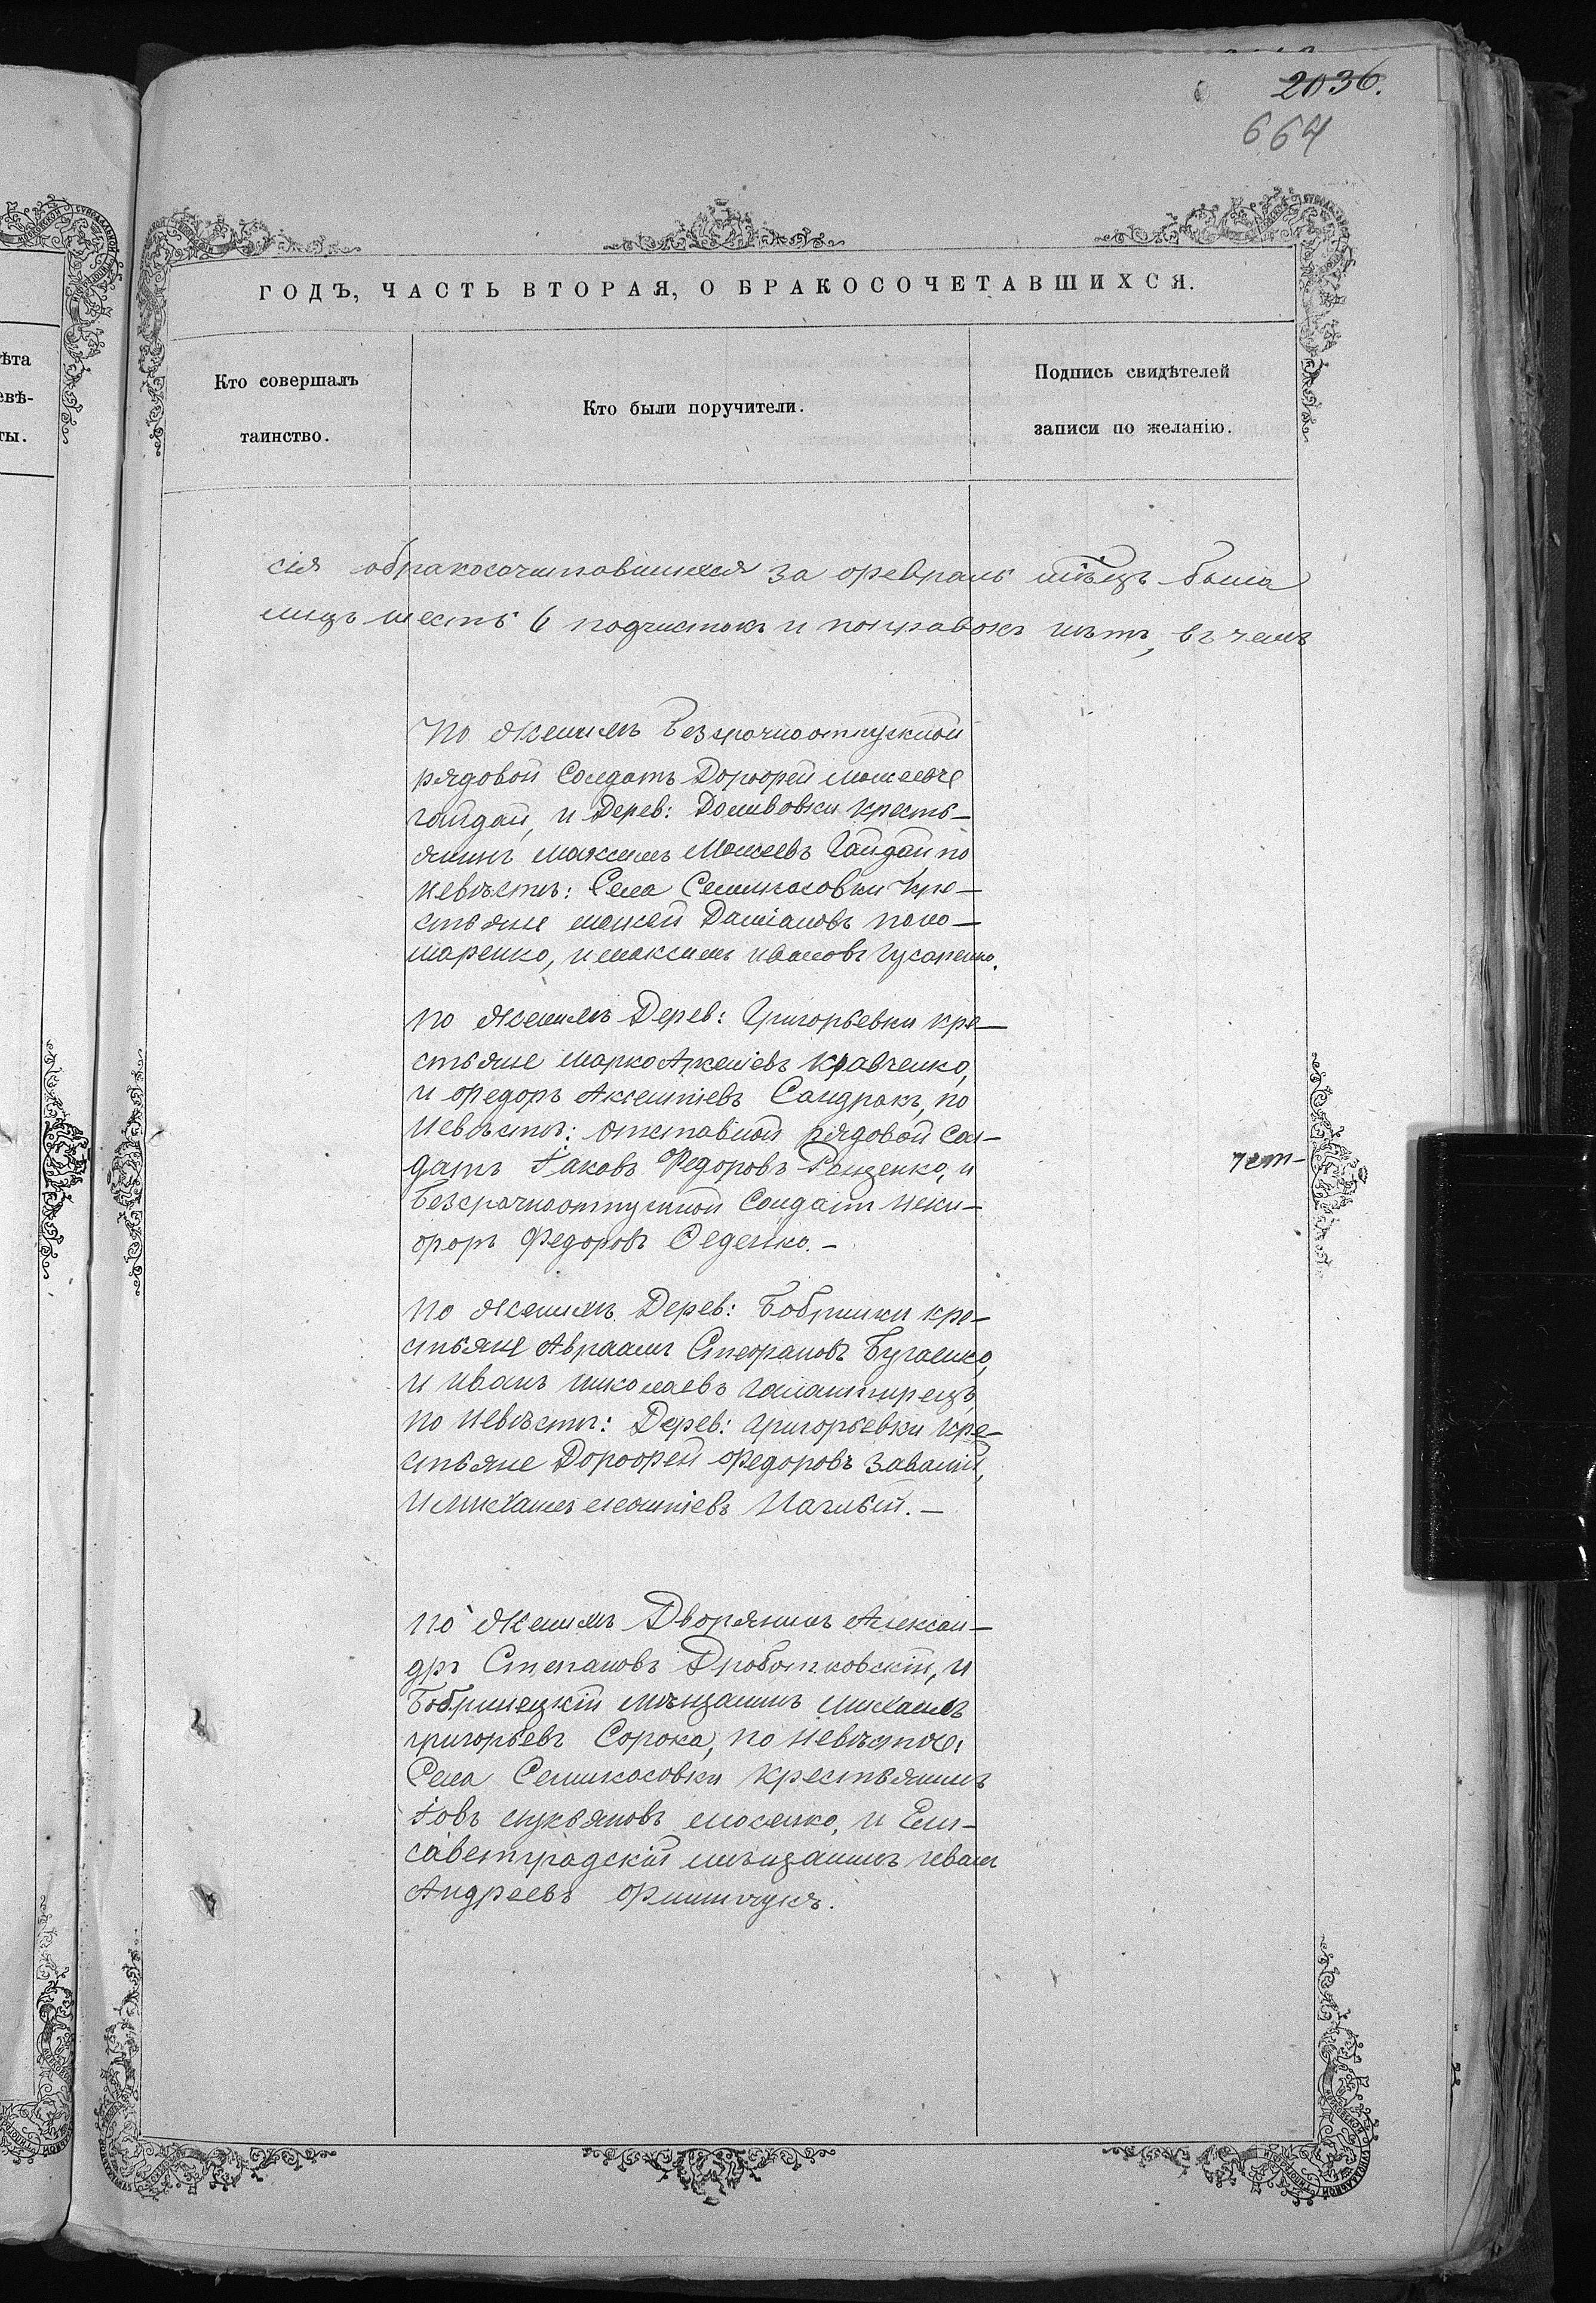 2036.
664
ГОДЪ, ЧАСТЬ ВТОРАЯ, О БРАКОСОЧЕТАВШИХСЯ.
Кто совершалъ
таинство.
Кто были поручители.
Подпись свидѣтелей
записи по желанію.
ѣта
евѣ-
ты.
сія обракосочитавшихся за февраль мѣсцъ была
лицъ шесть 6 подчистокъ и поправокъ нѣтъ, въ чемъ
По женихѣ безсрочноотпускной
рядовой Солдатъ Дорофей
Гайдай, и Дерев: кресть-
янинъ Максимъ Моисеевъ Гайдай, по
невѣстѣ: Села Семикосовки Кре-
стьяне Моисей Даміановъ Поно-
маренко, и Максимъ Ивановъ Гусаренко.
по женихѣ Дерев: Григорьевки кре-
стьяне Марко Кравченко,
и Федоръ Аксентіевъ Сандракъ, по
Невѣстѣ: отставной рядовой Сол-
датъ Іаковъ Федоровъ и
Безсрочноотпускной Солдатъ Ники-
форъ Федоровъ Феденко.-
по женихѣ Дерев: Бобринки кре-
стьяне Авраамъ Стефановъ Бугаенко,
и Иванъ Николаевъ
по Невѣстѣ: Дерев: Григорьевки кре-
стьяне Дорофей Федоровъ Завалій,
и Михаилъ Леонтіевъ Нагибій.-
по женихѣ Дворянинъ Алексан-
дръ Степановъ и
Бобринецкій мѣщанинъ Михаилъ
Григорьевъ Сорока, по Невѣстѣ:
Села Семикосовки крестьянинъ
Іовъ Лукьяновъ и Ели-
саветградскій мѣщанинъ Иванъ
Андреевъ Филипчукъ.